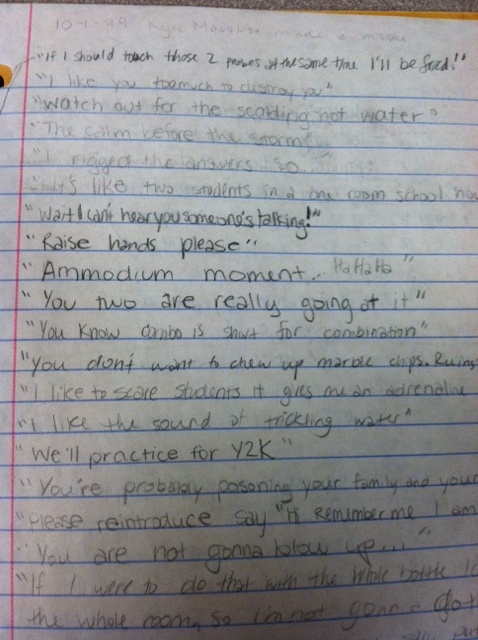 10-1-99 made a
"If I should touch those 2 probes at the same time I'll be fried!"
"I like you too much to destroy you"
"Watch out for the scalding hot water"
"The calm before the storm"
"I rigged the answers so
"It's like two students in a one room school hou
"Wait I can't hear you someone's talking!"
"Raise hands please"
"Ammodium moment.. HaHaHa"
"You two are really going at it"
"You know combo is short for combination"
"You don't want to chew up marble chips. Ruins
"I like to scare students it gives me an adrenaline
"I like the sound of trickling water"
"We'll practice for Y2K"
"You're probably poisoning your family and your
"Please reintroduce say "Hi Remember me I am
"You are not gonna blow up..."
"If I were to do that with the whole bottle
the whole room, so I'm not gonna do t